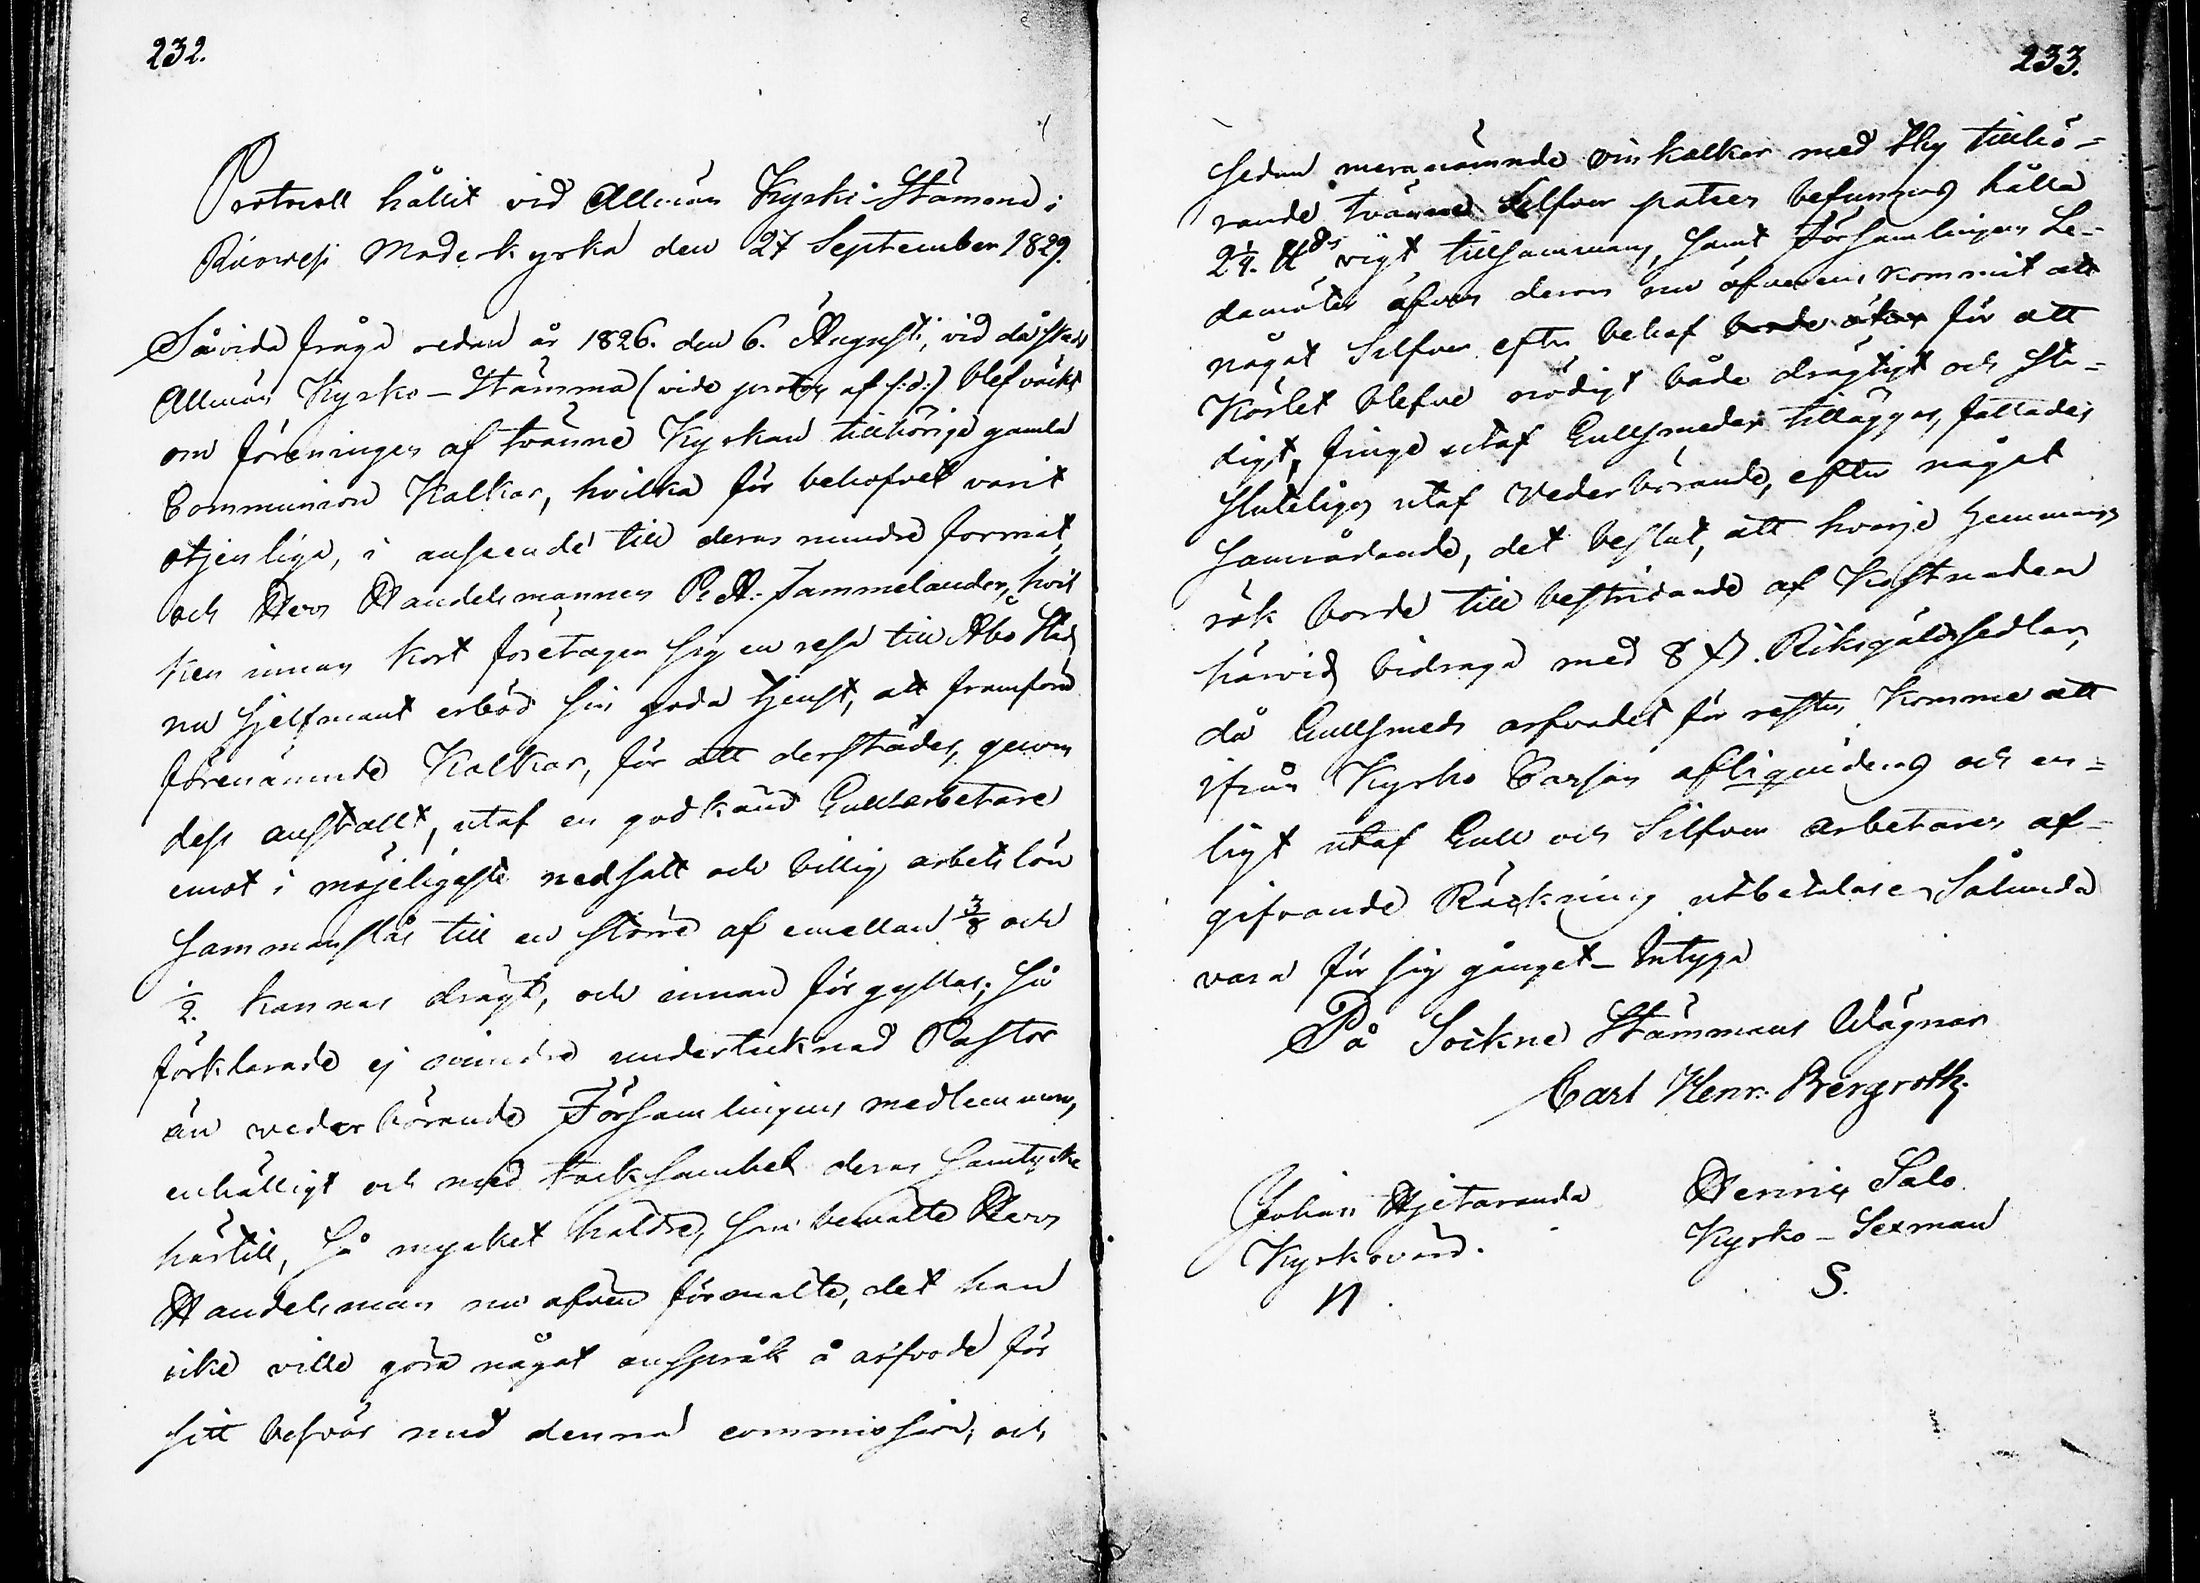 232.
Protocoll hållit vid Allmän Kyrko-Stämma i
Moderkyrka den 27 September 1829.
Såvida fråga redan år 1826. den 6. Augusti, vid då
Allmän Kyrko-Stämma (vide protoc af s:d:) blef väckt
om föreningen af tvänne Kyrkan tillhörige gamla
Communion Kalkar, hvilka för behofvet varit
otjenlige, i anseende till deras mindre format,
och Herr Handelsmannen hvil
ken innan kort företager sig en resa till Åbo Stad
nu sjelfmant erböd sin goda tjenst, att framföra
förenämnde Kalkar, för att derstädes, genom
dess anstallt, utaf en godkänd Gullarbetare
emot i möjeligaste nedsatt och billig arbets lön
sammanslås till en större af emellan 3/8 och
1/2. kannas drägt, och innan förgyllas; så
förklarade ej mindre undertecknad Pastor
än vederbörande Församlingens medlemmar,
enhälligt och med tacksamhet deras samtycke
härtill, så mycket häldre, som bemälte Herr
Handelsman nu äfven förmälte, det han
icke ville göra något anspråk å arfvode för
sitt besvär med denna commission; och
233.
sedan meranämnde vin kalkar med thy tillhö=
rande tvänne Silfver patéer befunnits hålla
2 1/4. vigt tillsammans, samt Församlingens Le-
damöter äfven derom nu öfverens kommit att
något Silfver efter behof för att
Kärlet blefve nödigt både drägtigt och sta=
digt, finge utaf Gullsmeden tilläggas, fattades
sluteligen utaf Vederbörande, efter något
samrådande, det beslut, att hvarje hemmans
rök borde till bestridande af Kostnaden
härvid bidraga med 8 ß. Riksgäldssedlar,
då Gullsmeds arfvodet för resten komme att
ifrån Kyrko Cassan afliquideras och en=
ligt utaf Gull och Silfver arbetaren af-
gifvande Räckning utbetalas. Sålunda
vara för sig gånget - Intyga
På Sockne Stämmans Wägnar
Carl Henr: Bergroth.
Johan Hjetaranda Henric Salo
Kyrkovärd. Kyrko-Sexman
N. S.